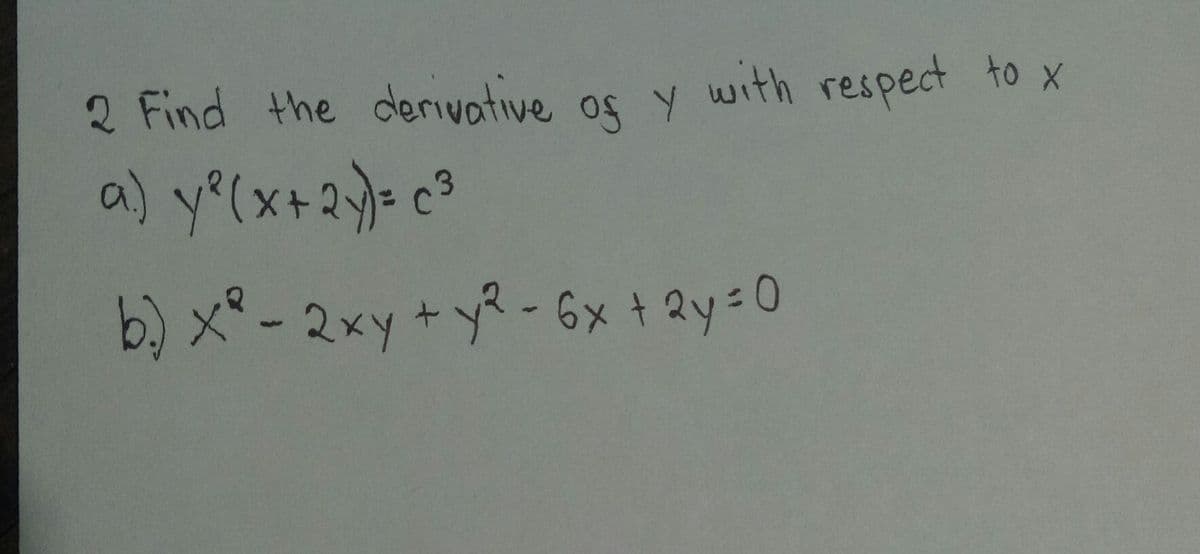 2 Find the derivative of y with respect to x
a.) y²(x+2y)= c³
b.) x² - 2xy + y² - 6x + 2y = 0